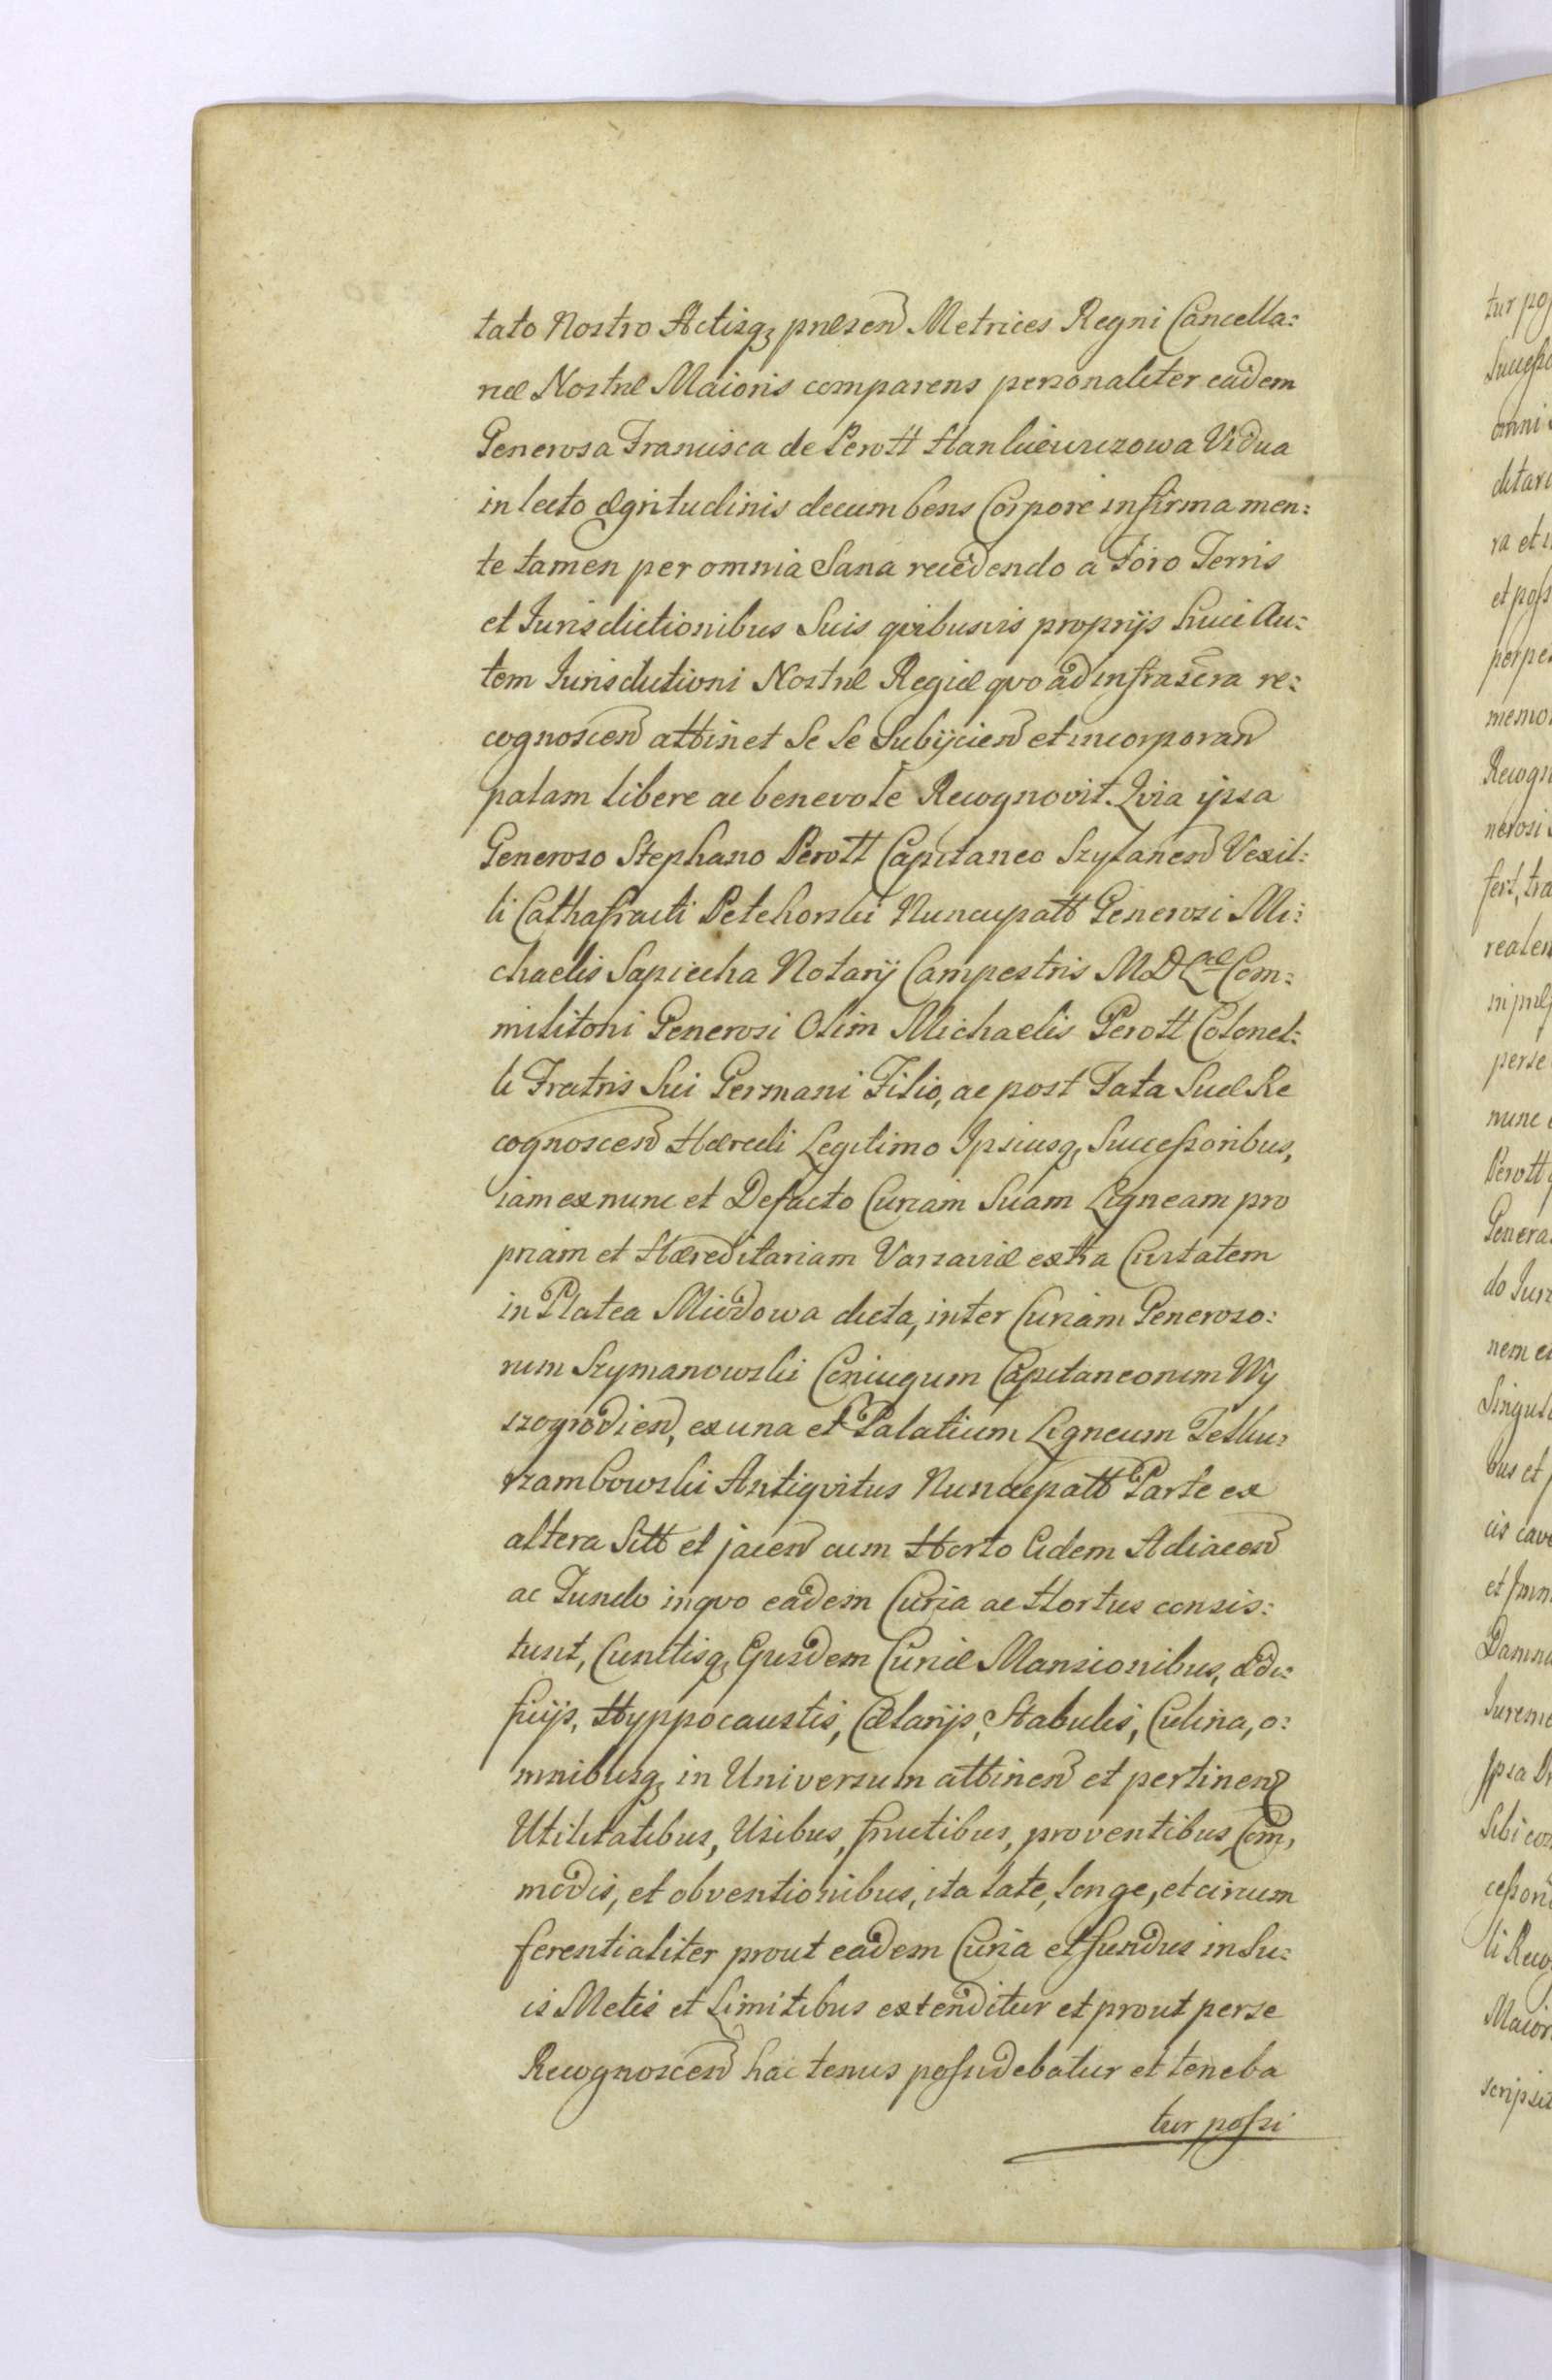 tato Nostro Actisq; pñlsen Metrices Regni Cancella:
riæ Nostræ Maioris comparens personaliter eadem
Generosa Francisca de Perott Hankiewiczowa Vidua
in lecto ægritudinis decumbens Corpore infirma men:
te tamen per omnia Sana recedendo a Foro Terris
et Jurisdictionibus Suis qvibusvis proprijs huic Au:
tem Jurisdictioni Nostræ Regiæ qvo ad infrascra re:
cognoscen attinet Se Se Subijcien et incorporan
palam libere ac benevole Recognovit. Qvia ipsa
Generoso Stephano Perott Capitaneo Szylanen Vexil:
li Cathafracti Petehorski Nuncupatt Generosi Mi:
chaelis Sapiecha Notarij Campestris M D Lae Com:
militoni Generosi Olim Michaelis Perott Colonel:
li Fratris Sui Germani Filio, ac post Fata Suæ Re
cognoscen Hæredi Legitimo Ipsiusq; Successoribus,
iam ex nunc et Defacto Curiam Suam Ligneam pro
priam et Hæreditariam Varsaviæ extra Civitatem
in Platea Miodowa dicta, inter Curiam Generoso:
rum Szymanowski Coniugum Capitaneorum Wy
szogrodien, ex una et Palatium Ligneum
Antiqvitus Nuncupatt Parte ex
altera Sitt et jacen cum Horto Eidem Adiacen
ac Fundo in qvo eadem Curia ac Hortus consis:
tunt, Cunctisq; Ejusdem Curiæ Mansionibus, ædi:
ficijs, Hyppocaustis, Cælarijs, Stabulis, Culina, o:
mnibusq; in Universum attinen et pertinen
Utilitatibus, Usibus, fructibus, proventibus, Com,
modis, et obventionibus, ita late, longe, et circum
ferentialiter prout eadem Curia et fundus in Su:
is Metis et Limitibus extenditur et prout per se
Recognoscen hactenus possidebatur et teneba
tur possi